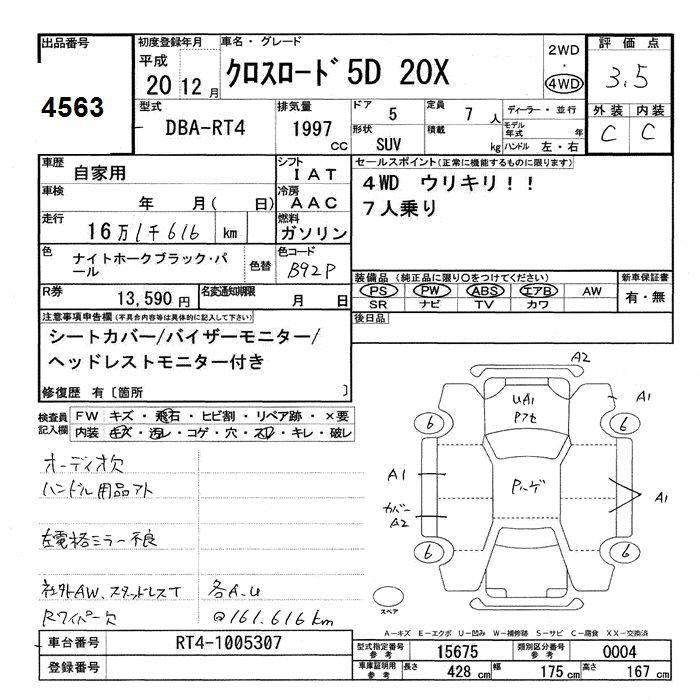 出品番号
4563
初度登録年月
平成
20 12 月
車名・グレード
クロスロード 5D 20X
2WD
・
4WD
評価点
3.5
外装 内装
C C
型式
DBA-RT4
排気量
1997 CC
ドア 5
形状 SUV
定員 7 人
積載 kg
ディーラー・並行
モデル年式 年
ハンドル 左・右
車歴 自家用
シフト IAT
車検 年 月( 日)
冷房 AAC
走行 16万1千616 km
燃料 ガソリン
色 ナイトホークブラック・パール
色替
色コード B92P
R券 13,590 円
名変通知期限 月 日
セールスポイント(正常に機能するものに限ります)
4WD ウリキリ!!
7人乗り
装備品 (純正品に限り○をつけてください)
PS PW ABS エアB AW
SR ナビ TV カワ
新車保証書
有・無
後日品
注意事項申告欄(不具合内容等は具体的に記入して下さい)
シートカバー/バイザーモニター/
ヘッドレストモニター付き
修復歴 有〔箇所 〕
検査員記入欄
FW キズ・飛石・ヒビ割・リペア跡・×要
内装 キズ・汚レ・コゲ・穴・スレ・キレ・破レ
オーディオ欠
ハンドル用品アト
左電格ミラー不良
社外AW、スタッドレスT 各A.U
Rワイパー欠 @161.616km
A2
UA1
アクセ
A1
6 6
A1
カバー
A2
Pハゲ
A1
6 6
スペア
A-キズ E-エクボ U-凹み W-補修跡 S-サビ C-腐食 XX-交換済
車台番号 RT4-1005307
登録番号
型式指定番号 参考 15675
類別区分番号 参考 0004
車庫証明用 参考 長さ 428 cm 幅 175 cm 高さ 167 cm